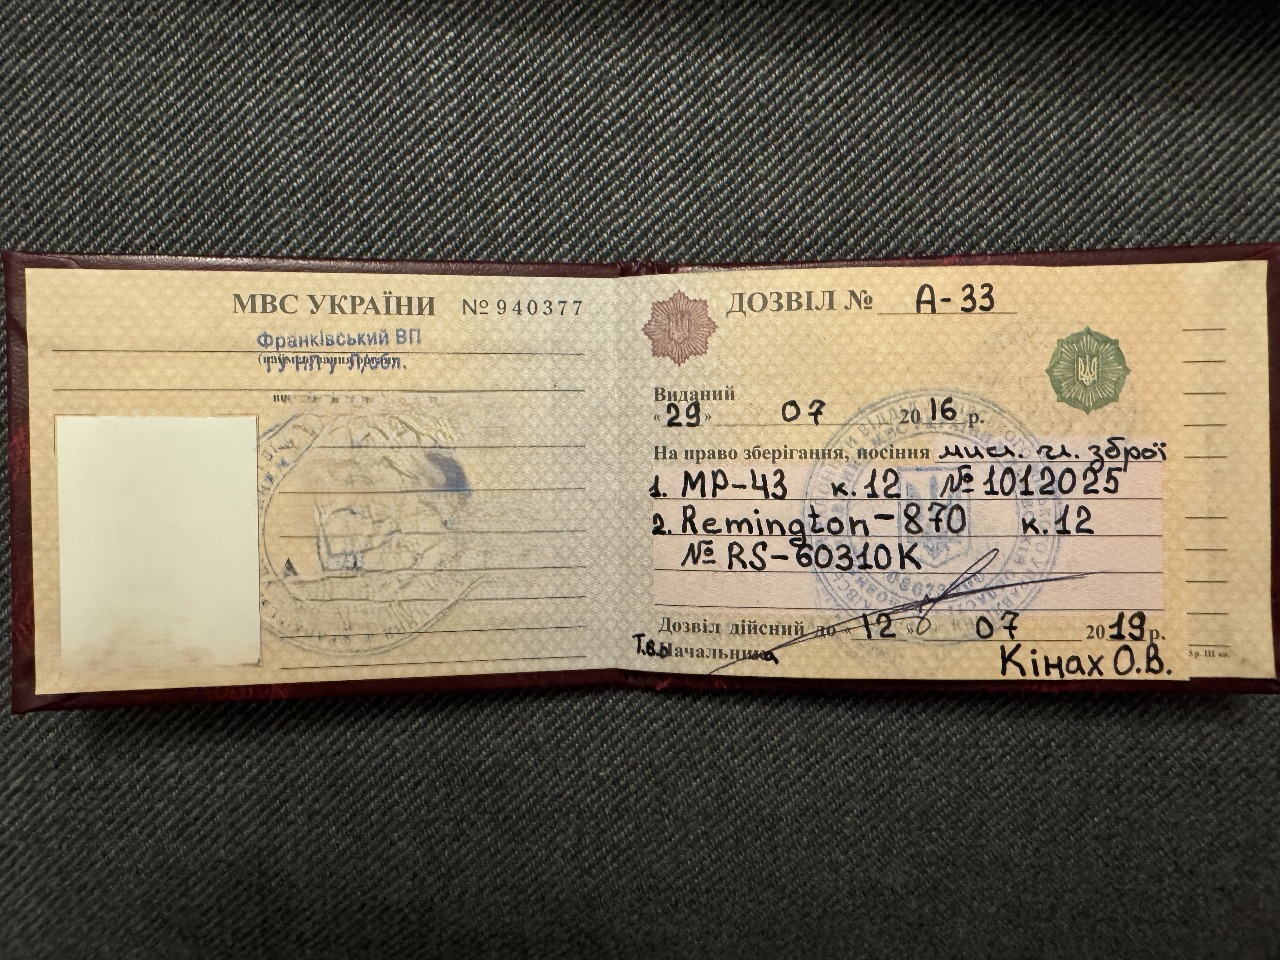 МВС УКРАЇНИ № 940377
Франківський ВП
(найменування органу)
ГУНП у Л/обл.
ДОЗВІЛ № А-33
Виданий
«29» 07 2016 р.
На право зберігання, носіння мисл. гл. зброї
1. МР-43 к.12 № 1012025
2. Remington-870 к.12
№ RS-60310K
Дозвіл дійсний до «12» 07 2019 р.
Т.в.о Начальника
Кінах О.В.